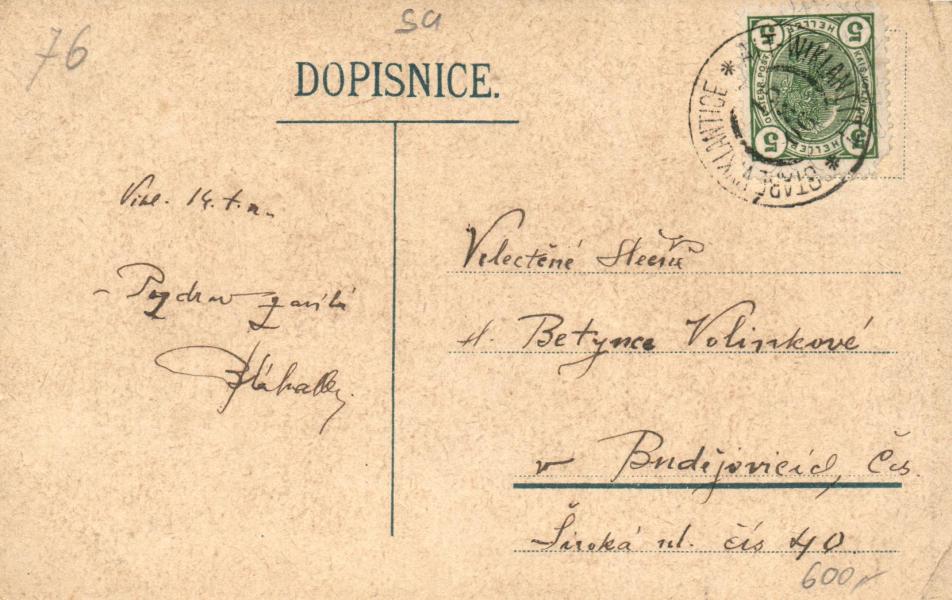 76
sa
DOPISNICE.
5 HELLER 5
5 HELLER 5
WIKLANTIC
STARÉ WIKLANTICE
14. t. m.
Pozdrav zasílá
Velectěné Slečně
sl. Betynce Volinkové
v Budějovicích, Čes.
Široká ul. čís 40.
600